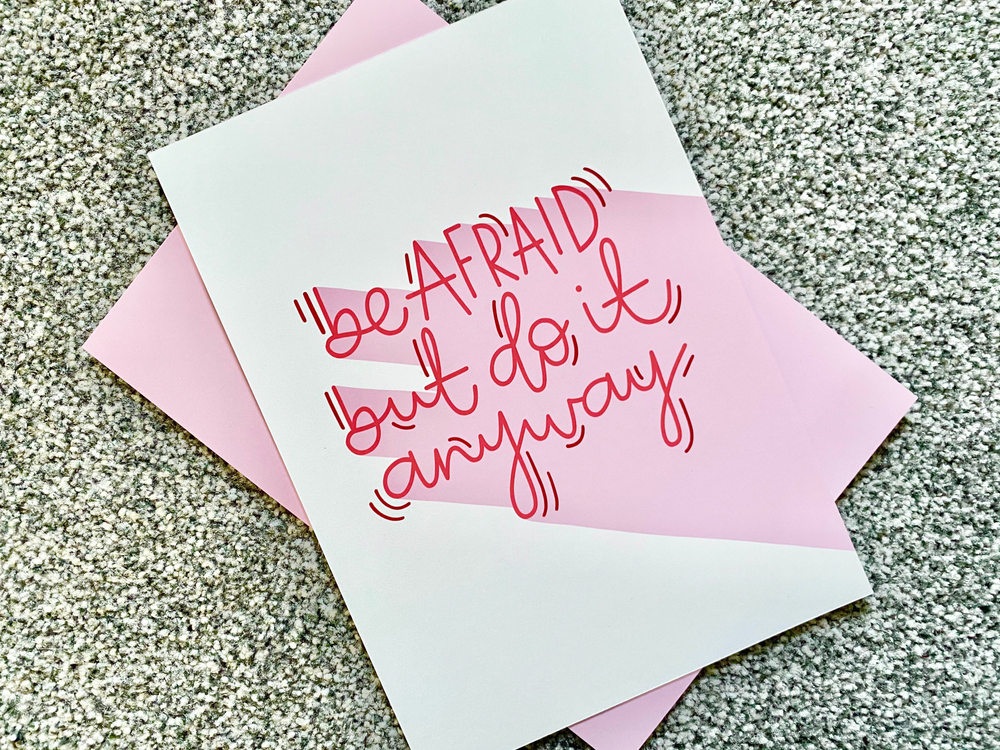 be AFRAID
but do it
anyway